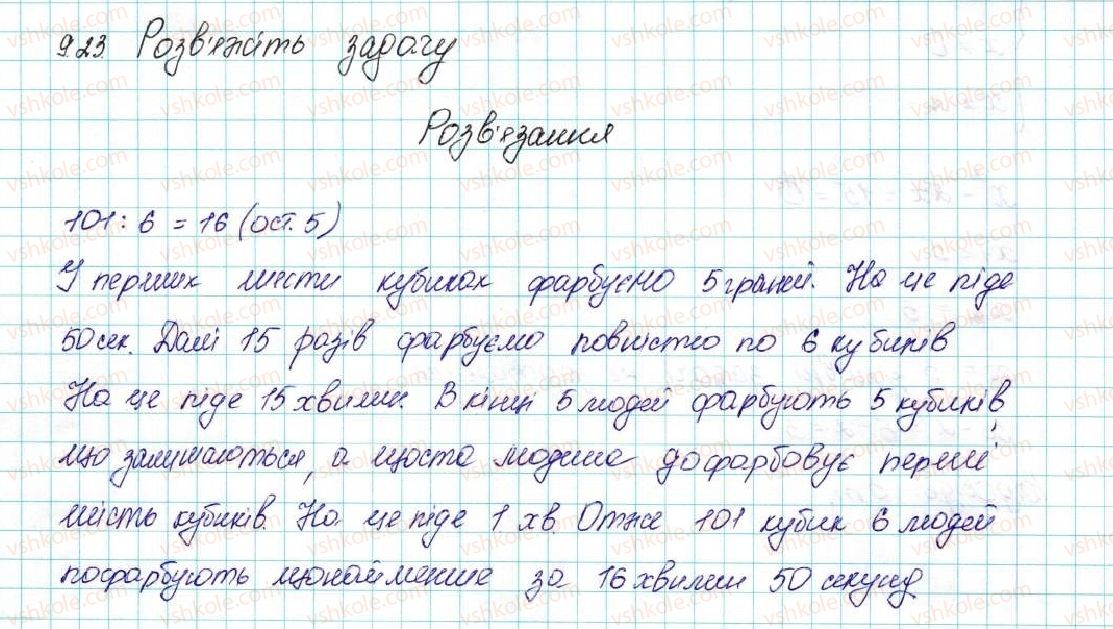 923. Розв'яжіть задачу
Розв'язання
101 : 6 = 16 (ост. 5)
У перших шести кубиках фарбуємо 5 граней. На це піде
50 сек. Далі 15 разів фарбуємо повністю по 6 кубиків
На це піде 15 хвилин. В кінці 5 людей фарбують 5 кубиків,
що залишаються, а шоста людина дофарбовує перші
шість кубиків. На це піде 1 хв. Отже 101 кубик 6 людей
пофарбують щонайменше за 16 хвилин 50 секунд